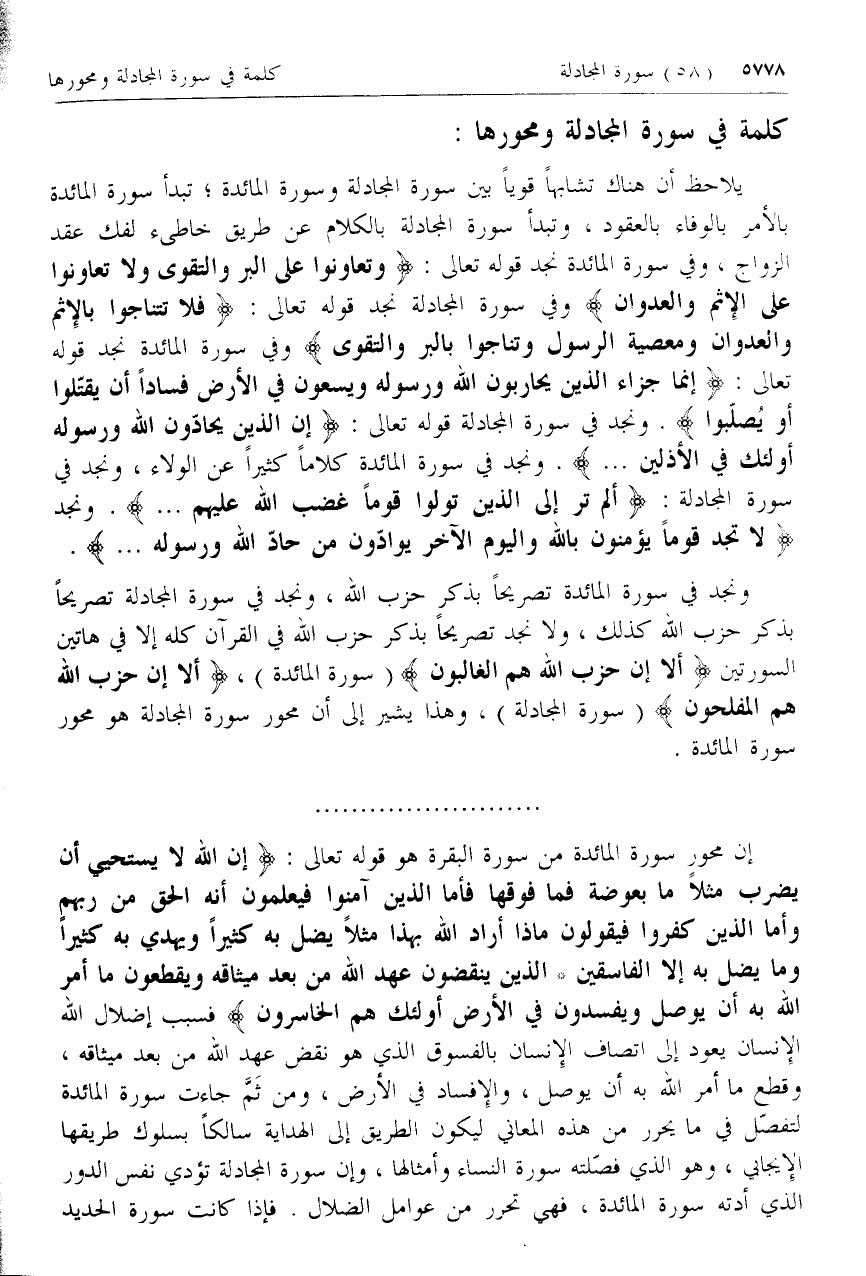 ٥٧٧٨ (٥٨) سورة المجادلة كلمة في سورة المجادلة ومحورها
كلمة في سورة المجادلة ومحورها :
يلاحظ أن هناك تشابهاً قوياً بين سورة المجادلة وسورة المائدة ؛ تبدأ سورة المائدة
بالأمر بالوفاء بالعقود ، وتبدأ سورة المجادلة بالكلام عن طريق خاطىء لفك عقد
الزواج ، وفي سورة المائدة نجد قوله تعالى : ﴿ وتعاونوا على البر والتقوى ولا تعاونوا
على الإثم والعدوان ﴾ وفي سورة المجادلة نجد قوله تعالى : ﴿ فلا تتناجوا بالإثم
والعدوان ومعصية الرسول وتناجوا بالبر والتقوى ﴾ وفي سورة المائدة نجد قوله
تعالى : ﴿ إنما جزاء الذين يحاربون الله ورسوله ويسعون في الأرض فساداً أن يقتّلوا
أو يُصلّبوا ﴾ . ونجد في سورة المجادلة قوله تعالى : ﴿ إن الذين يحادّون الله ورسوله
أولئك في الأذلين ... ﴾ . ونجد في سورة المائدة كلاماً كثيراً عن الولاء ، ونجد في
سورة المجادلة : ﴿ ألم تر إلى الذين تولوا قوماً غضب الله عليهم ... ﴾ . ونجد
﴿ لا تجد قوماً يؤمنون بالله واليوم الآخر يوادّون من حادّ الله ورسوله ... ﴾ .
ونجد في سورة المائدة تصريحاً بذكر حزب الله ، ونجد في سورة المجادلة تصريحاً
بذكر حزب الله كذلك ، ولا نجد تصريحاً بذكر حزب الله في القرآن كله إلا في هاتين
السورتين ﴿ ألا إن حزب الله هم الغالبون ﴾ ( سورة المائدة ) ، ﴿ ألا إن حزب الله
هم المفلحون ﴾ ( سورة المجادلة ) ، وهذا يشير إلى أن محور سورة المجادلة هو محور
سورة المائدة .
.........................
إن محور سورة المائدة من سورة البقرة هو قوله تعالى : ﴿ إن الله لا يستحيي أن
يضرب مثلاً ما بعوضة فما فوقها فأما الذين آمنوا فيعلمون أنه الحق من ربهم
وأما الذين كفروا فيقولون ماذا أراد الله بهذا مثلاً يضل به كثيراً ويهدي به كثيراً
وما يضل به إلا الفاسقين * الذين ينقضون عهد الله من بعد ميثاقه ويقطعون ما أمر
الله به أن يوصل ويفسدون في الأرض أولئك هم الخاسرون ﴾ فسبب إضلال الله
الإنسان يعود إلى اتصاف الإنسان بالفسوق الذي هو نقض عهد الله من بعد ميثاقه ،
وقطع ما أمر الله به أن يوصل ، والإفساد في الأرض ، ومن ثَمَّ جاءت سورة المائدة
لتفصّل في ما يحرر من هذه المعاني ليكون الطريق إلى الهداية سالكاً بسلوك طريقها
الإيجابي ، وهو الذي فصّلته سورة النساء وأمثالها ، وإن سورة المجادلة تؤدي نفس الدور
الذي أدته سورة المائدة ، فهي تحرر من عوامل الضلال . فإذا كانت سورة الحديد